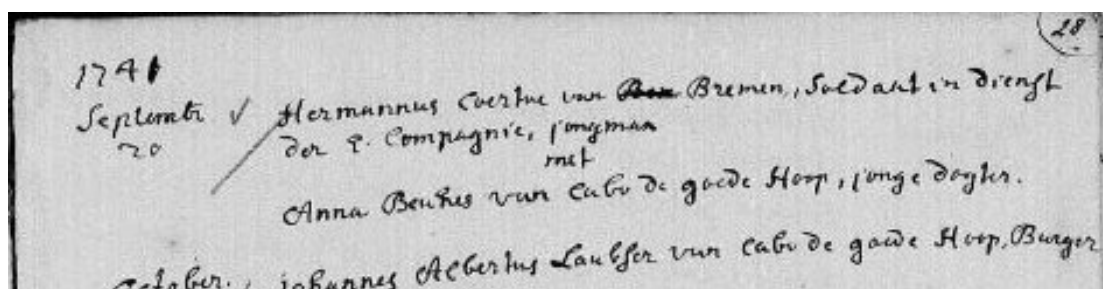 28
1741
Septembr √ Hermannus Coertse van Bremen, Soldaat in dienst
20 der E. Compagnie, jongman
met
Anna Beukes van Cabo de goede Hoop, jonge dogter.
October., Johannes Albertus Laubser van Cabo de goede Hoop, Burger